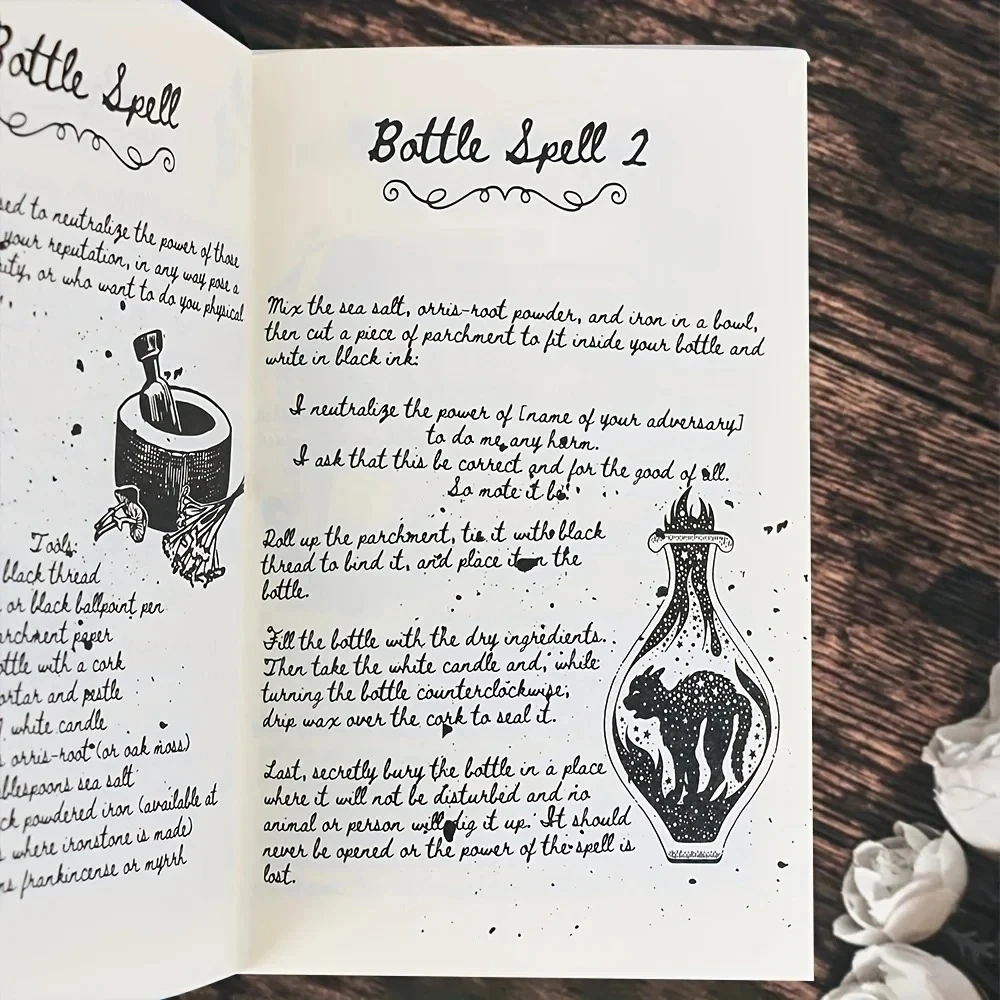 Bottle Spell
sed to neutralize the power of those
your reputation, in any way pose a
or who want to do you physical
Tools:
black thread
or black ballpoint pen
paper
with a cork
and pestle
white candle
orris-root (or oak moss)
sea salt
powdered iron (available at
where ironstone is made)
frankincense or myrrh
Bottle Spell 2
Mix the sea salt, orris-root powder, and iron in a bowl,
then cut a piece of parchment to fit inside your bottle and
write in black ink:
I neutralize the power of [name of your adversary]
to do me any harm.
I ask that this be correct and for the good of all.
So mote it be!
Roll up the parchment, tie it with black
thread to bind it, and place it in the
bottle.
Fill the bottle with the dry ingredients.
Then take the white candle and, while
turning the bottle counterclockwise,
drip wax over the cork to seal it.
Last, secretly bury the bottle in a place
where it will not be disturbed and no
animal or person will dig it up. It should
never be opened or the power of the spell is
lost.